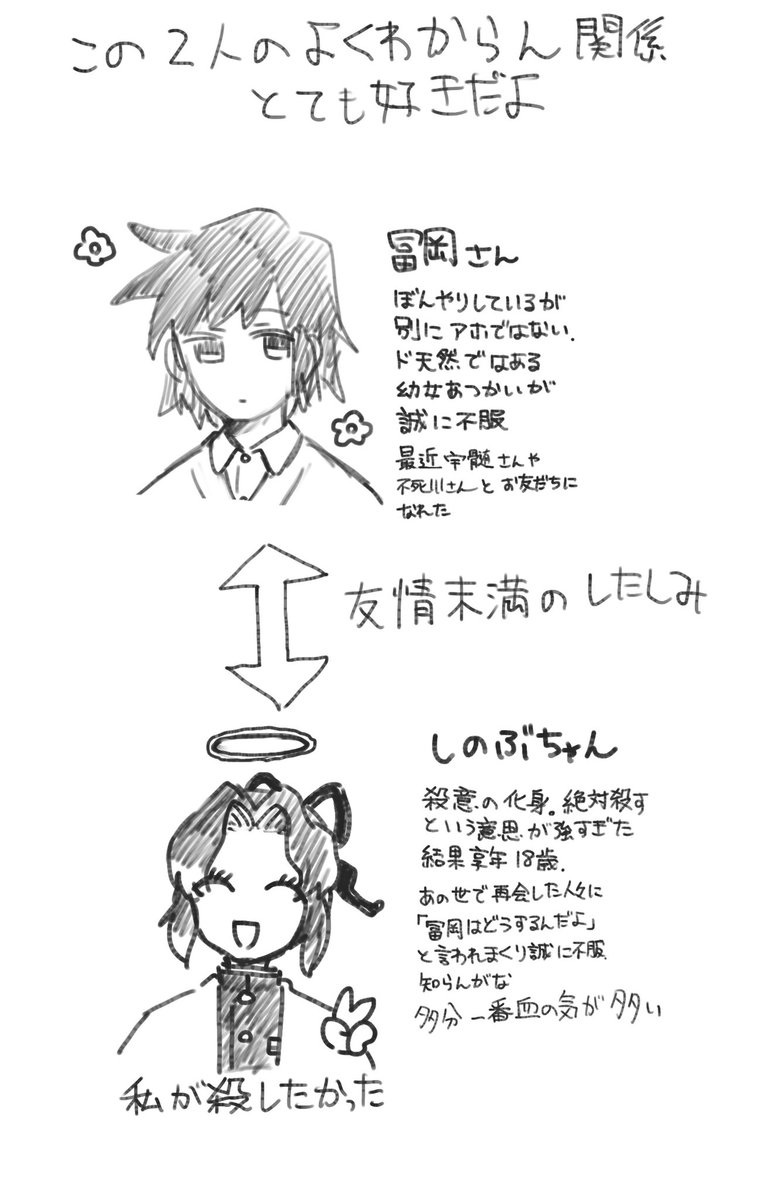 この2人のよくわからん関係
とても好きだよ
冨岡さん
ぼんやりしているが
別にアホではない.
ド天然ではある
幼女あつかいが
誠に不服
最近宇髄さんや
不死川さんとお友だちに
なれた
友情末満のしたしみ
しのぶちゃん
殺意の化身。絶対殺す
という意思が強すぎた
結果享年18歳.
あの世で再会した人々に
「冨岡はどうするんだよ」
と言われまくり誠に不服.
知らんがな
多分一番血の気が多い
私が殺したかった